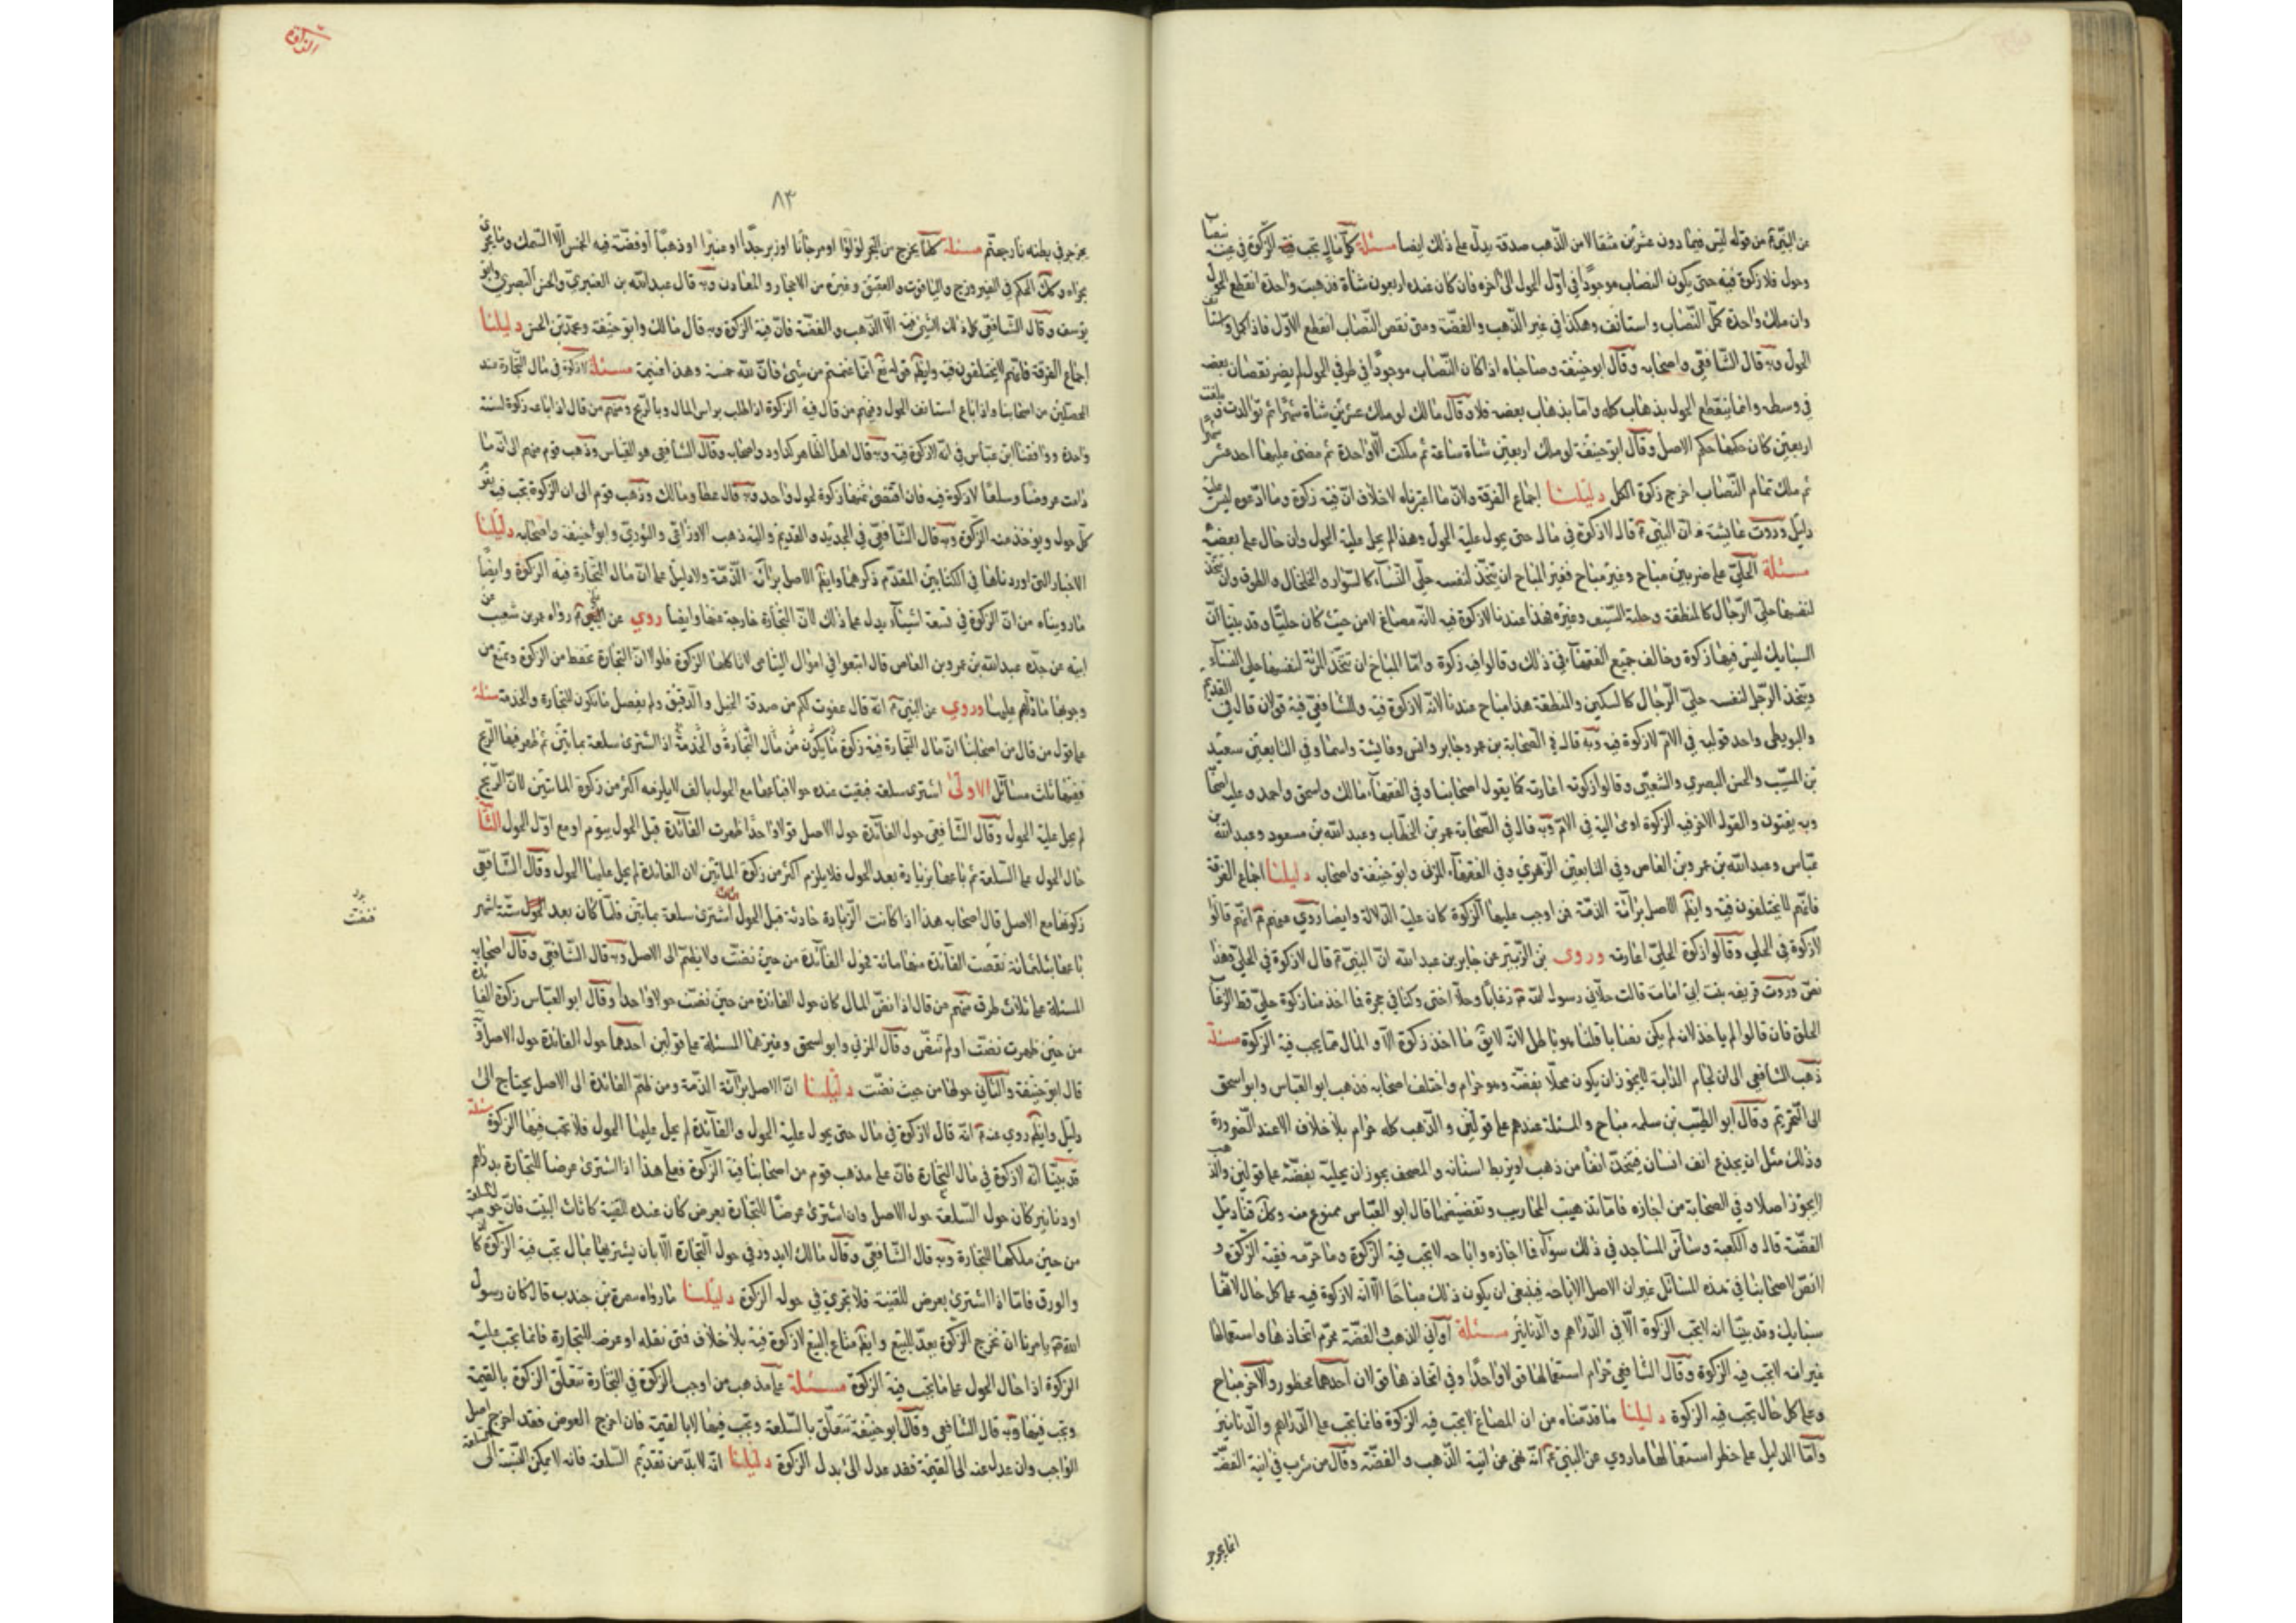 عن النبي ع من قوله ليس فيما دون عشرين مثقالا من الذهب صدقة يدل على ذلك ايضا مسئلة كل مال تجب فيه الزكوة في عينه نصابا
وحول فلا زكوة فيه حتى يكون النصاب موجودا في اول الحول الى اخره فان كان عنده اربعون شاة فذهبت واحدة انقطع الحول
وان ملك واحدة كمل النصاب واستانف وهكذا في غير الذهب والفضة ومتى نقص النصاب انقطع الاول فاذا كمل استانف
الحول وبه قال الشافعي واصحابه وقال ابو حنيفة وصاحباه اذا كان النصاب موجودا في طرفي الحول لم يضر نقصان بعضه
في وسطه وانما ينقطع الحول بذهاب كله واما بذهاب بعضه فلا وقال مالك لو ملك عشرين شاة شهرا ثم توالدت بلغت
اربعين كان حكمها حكم الاصل وقال ابو حنيفة لو ملك اربعين شاة ساعة ثم هلكت الا واحدة ثم مضى عليها احد عشر شهرا
ثم ملك تمام النصاب اخرج زكوة الكل دليلنا اجماع الفرقة ولان ما اعتبرناه لا خلاف ان فيه زكوة وما ادعوه ليس عليه
دليل وروت عايشة ان النبي ع قال لا زكوة في مال حتى يحول عليه الحول وهذا لم يحل عليه الحول وان حال على بعضه
مسئلة الحلي على ضربين مباح وغير مباح فغير المباح ان يتخذ لنفسه حلي النساء كالسوار والخلخال والطوق وان تتخذ
لنفسها حلي الرجال كالمنطقة وحلية السيف وغيره فهذا عندنا لا زكوة فيه لانه مصاغ لا من حيث كان حليا وقد بينا ان
السبايك ليس فيها زكوة وخالف جميع الفقهاء في ذلك وقالوا فيه زكوة واما المباح ان تتخذ المرئة لنفسها حلي النساء
ويتخذ الرجل لنفسه حلي الرجال كالسكين والمنطقة هذا مباح عندنا لانه لا زكوة فيه وللشافعي فيه قولان قال في القديم
والبويطي واحد قوليه في الام لا زكوة فيه وبه قال في الصحابة بن عمر وجابر وانس وعايشة واسما وفي التابعين سعيد
بن المسيب والحسن البصري والشعبي وقالوا زكوته اعارته كما يقول اصحابنا وفي الفقهاء مالك واسحق واحمد وعليه اصحابه
وبه يفتون والقول الاخر فيه الزكوة اومى اليه في الام وبه قال في الصحابة عمر بن الخطاب وعبد الله بن مسعود وعبد الله بن
عباس وعبد الله بن عمرو بن العاص وفي التابعين الزهري وفي الفقهاء المزني وابو حنيفة واصحابه دليلنا اجماع الفرقة
فانهم لا يختلفون فيه وايضا الاصل براءة الذمة فمن اوجب عليها الزكوة كان عليه الدلالة وايضا روي عنهم ع انهم قالوا
لا زكوة في الحلي وقالوا زكوة الحلي اعارته وروى بن الزبير عن جابر بن عبد الله ان النبي ع قال لا زكوة في الحلي فهذا
نص وروت فريعه بنت ابي امامة قالت حلاني رسول الله رعاثا وحلا اختي وكنا في حجره فما اخذ منا زكوة حلي قط الرعاث
الحلق فان قالوا لم ياخذ لانه لم يكن نصابا قلنا هو باطل لانه لا يق ما اخذ زكوة الا والمال مما يجب فيه الزكوة مسئلة
ذهب الشافعي الى ان لجام الدابة لا يجوز ان يكون محلا بفضة وهو حرام واختلف اصحابه فذهب ابو العباس وابو اسحق
الى التحريم وقال ابو الطيب بن سلمه مباح والمسئلة عندهم على قولين والذهب كله حرام بلا خلاف الا عند الضرورة
وذلك مثل ان يجذع انف انسان فيتخذ انفا من ذهب او يربط اسنانه والمصحف يجوز ان يحليه بفضة على قولين والذهب
لا يجوز اصلا وفي الصحابة من اجازه فاما تذهيب المحاريب وتفضيضها قال ابو العباس ممنوع منه وكذلك قناديل
الفضة قال والكعبة وسائر المساجد في ذلك سواء فما اجازه واباحه لا تجب فيه الزكوة وما حرمه ففيه الزكوة و
لا نص لاصحابنا في هذه المسائل غير ان الاصل الاباحه فينبغي ان يكون ذلك مباحا الا انه لا زكوة فيه على كل حال لانها
سبايك وقد بينا انه لا تجب الزكوة الا في الدراهم والدنانير مسئلة اواني الذهب والفضة محرم اتخاذها واستعمالها
غير انه لا تجب فيه الزكوة وقال الشافعي حرام استعمالها قولا واحدا وفي اتخاذها قولان احدهما محظور والاخر مباح
وعلى كل حال تجب فيه الزكوة دليلنا ما قدمناه من ان المصاغ لا يجب فيه الزكوة فانما تجب على الدراهم والدنانير
واما الدليل على حظر استعمالها ما روي عن النبي ع انه نهى عن انية الذهب والفضة وقال من شرب في انية الفضة
انما يجرجر
٨٣
يجرجر في بطنه نار جهنم مسئلة كلما يخرج من البحر لؤلؤا او مرجانا او زبرجدا او عنبرا او ذهبا او فضة فيه الخمس الا السمك وما يجري
مجراه وكذلك الحكم في الفيروزج والياقوت والعقيق وغيره من الاحجار والمعادن وبه قال عبد الله بن العنبري والحسن البصري وابو
يوسف وقال الشافعي كل ذلك لا شيء فيه الا الذهب والفضة فان فيه الزكوة وبه قال مالك وابو حنيفة ومحمد بن الحسن دليلنا
اجماع الفرقة فانهم لا يختلفون فيه وايضا قوله تع انما غنمتم من شيء فان لله خمسه وهذا غنيمة مسئلة لا زكوة في مال التجارة عند
المحصلين من اصحابنا واذا باع استانف الحول ومنهم من قال فيه الزكوة اذا طلب براس المال وبالربح ومنهم من قال اذا باعه زكوة لسنة
واحدة ووافقنا ابن عباس في انه لا زكوة فيه وبه قال اهل الظاهر كداود واصحابه وقال الشافعي هو القياس وذهب قوم منهم الى انه ما
دامت عروضا وسلعا لا زكوة فيه فان اقتضى ثمنها زكوة لحول واحد وبه قال عطا ومالك وذهب قوم الى ان الزكوة تجب فيه يقوم
كل حول ويوخذ منه الزكوة وبه قال الشافعي في الجديد والقديم واليه ذهب الاوزاعي والثوري وابو حنيفة واصحابه دليلنا
الاخبار التي اوردناها في الكتابين المقدم ذكرهما وايضا الاصل براءة الذمة ولا دليل على ان مال التجارة فيه الزكوة وايضا
ما رويناه من ان الزكوة في تسعة اشياء يدل على ذلك لان التجارة خارجة عنها وايضا روي عن النبي ع رواه عمرو بن شعيب عن
ابيه عن جده عبد الله بن عمرو بن العاص قال ابتغوا في اموال اليتامى لا تاكلها الزكوة فلولا ان التجارة تحفظ من الزكوة وتمنع من
وجوبها ما دلهم عليها وروي عن النبي ع انه قال عفوت لكم من صدقة الخيل والرقيق ولم يفصل ما تكون للتجارة والخدمة مسئلة
على قول من قال من اصحابنا ان مال التجارة فيه زكوة ما يكون من مال التجارة والخدمة اذا اشترى سلعة بماتين ثم ظهر فيها الربح
ففيها ثلث مسائل الاولى اشترى سلعة فبقيت عنده حولا فباعها مع الحول بالف لا يلزمه اكثر من زكوة الماتين لان الربح
لم يحل عليه الحول وقال الشافعي حول الفائدة حول الاصل قولا واحدا ظهرت الفائدة قبل الحول بيوم او مع اول الحول الثانية
حال الحول على السلعة ثم باعها بزيادة بعد الحول فلا يلزم اكثر من زكوة الماتين لان الفائدة لم يحل عليها الحول وقال الشافعي
زكوتها مع الاصل قال اصحابه هذا اذا كانت الزيادة حادثة قبل الحول الثالثة اشترى سلعة بماتين فلما كان بعد الحول ستة اشهر
باعها بثلثمائة نقصت الفائدة منها مائة فحول الفائدة من حين نضت ولا يضم الى الاصل وبه قال الشافعي وقال اصحابه
المسئلة على ثلاث طرق منهم من قال اذا نض المال كان حول الفائدة من حين نضت حولا واحدا وقال ابو العباس زكوة الفائدة
من حين ظهرت نضت او لم تنض وقال المزني وابو اسحق وغيرهما المسئلة على قولين احدهما حول الفائدة حول الاصل وبه
قال ابو حنيفة والثاني حولها من حيث نضت دليلنا ان الاصل براءة الذمة ومن ضم الفائدة الى الاصل يحتاج الى
دليل وايضا روي عنه ع انه قال لا زكوة في مال حتى يحول عليه الحول والفائدة لم يحل عليها الحول فلا تجب فيها الزكوة مسئلة
قد بينا انه لا زكوة في مال التجارة فان على مذهب قوم من اصحابنا فيه الزكوة فعلى هذا اذا اشترى عرضا للتجارة بدراهم
او دنانير كان حول السلعة حول الاصل وان اشترى عرضا للتجارة بعرض كان عنده للقنية كاثاث البيت فان حول السلعة
من حين ملكها للتجارة وبه قال الشافعي وقال مالك لا يدور في حول التجارة الا بان يشتريها بمال تجب فيه الزكوة كالعين
والورق فاما اذا اشترى بعرض للقنية فلا يجري في حول الزكوة دليلنا ما رواه سمرة بن جندب قال كان رسول
الله ص يامرنا ان نخرج الزكوة مما يعد للبيع وايضا متاع البيع لا زكوة فيه بلا خلاف فمتى نقله او عرضه للتجارة فانما تجب عليه
الزكوة اذا حال الحول على ما تجب فيه الزكوة مسئلة على مذهب من اوجب الزكوة في التجارة تتعلق الزكوة بالقيمة
وتجب فيها وبه قال الشافعي وقال ابو حنيفة تتعلق بالسلعة وتجب فيها لا بالقيمة فان اخرج العرض فقد اخرج اصل
الواجب وان عدل عنه الى القيمة فقد عدل الى بدل الزكوة دليلنا انه لا بد من تقديم السلعة فانه لا يمكن